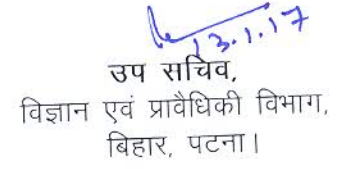 13.1.17
उप सचिव,
विज्ञान एवं प्रावैधिकी विभाग,
बिहार, पटना।